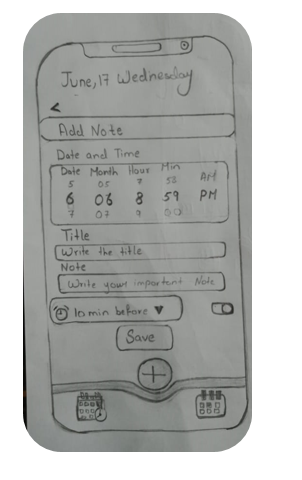 June,17 Wednesday
<
Add Note
Date and Time
Date Month Hour Min
5 05 7 58 AM
6 06 8 59 PM
7 07 9 00
Title
Write the title
Note
Write your important Note
10 min before ▼
Save
+